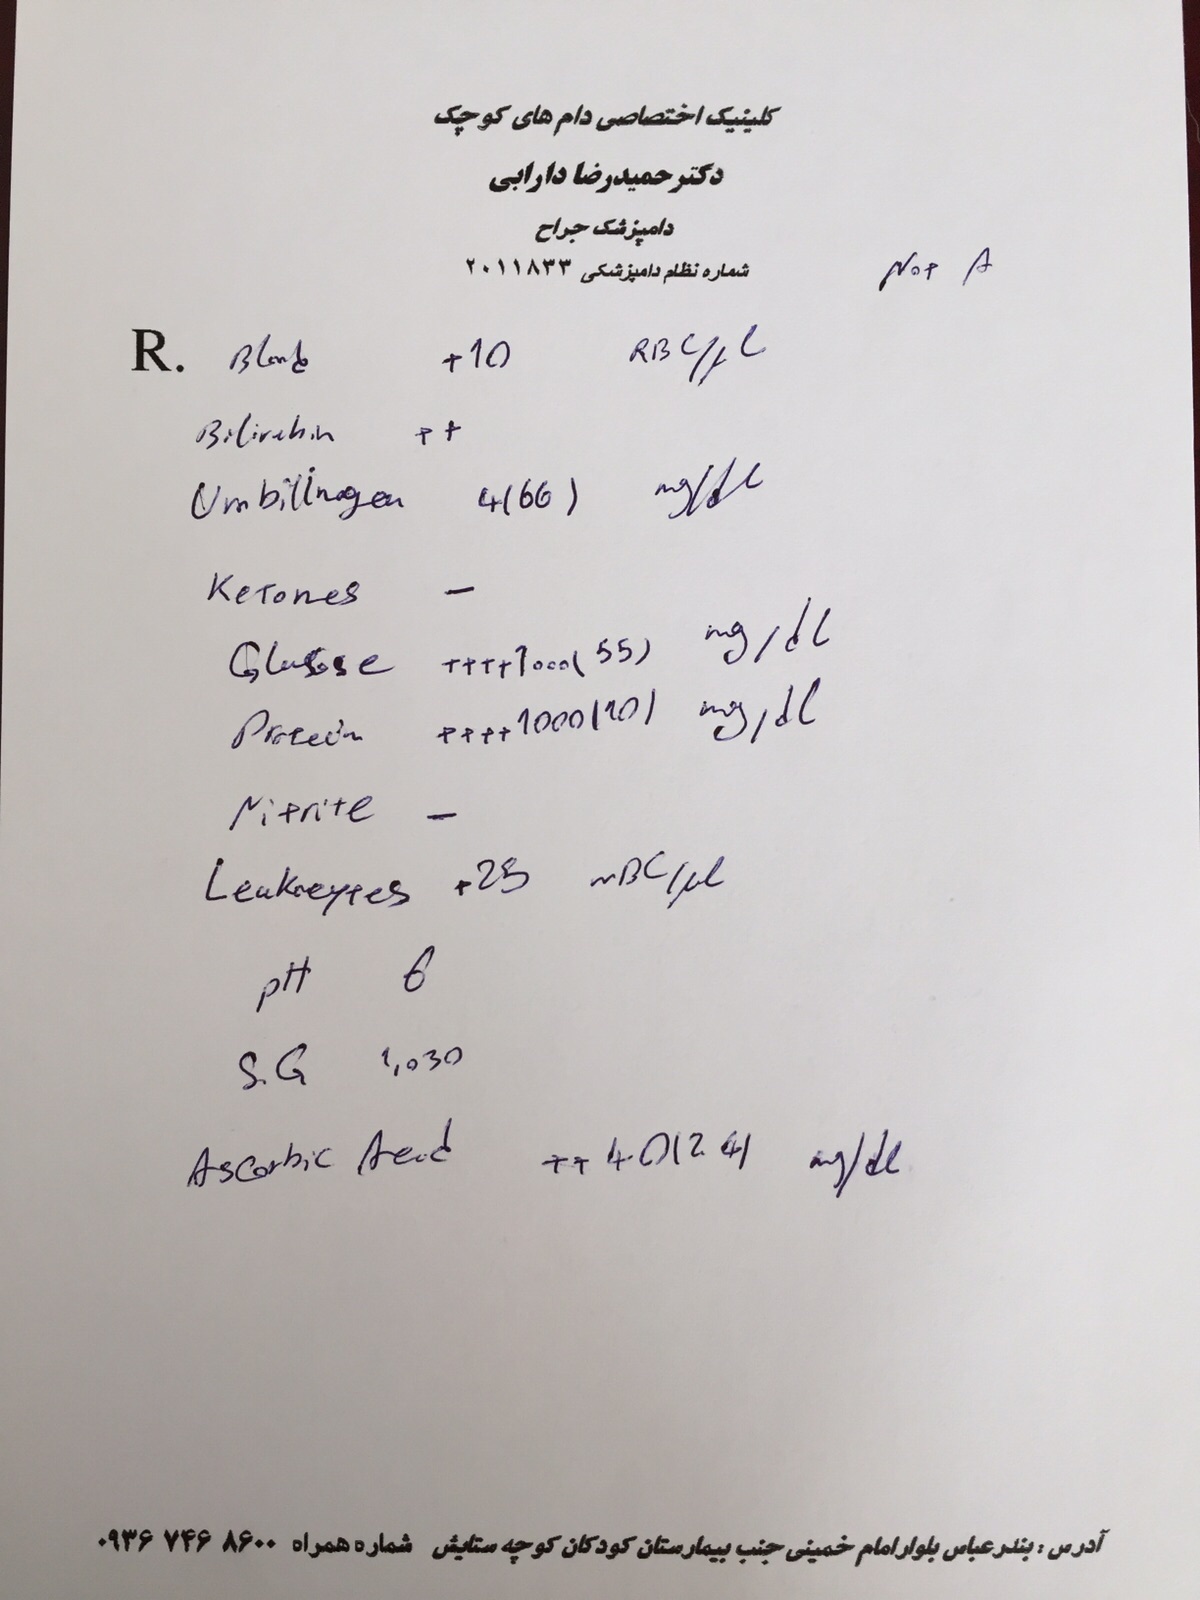 کلینیک اختصاصی دام های کوچک
دکتر حمیدرضا دارابی
دامپزشک جراح
شماره نظام دامپزشکی ۲۰۱۱۸۳۳
Not A
R. Blood +10 RBC/µL
Bilirubin ++
Urobilinogen 4(66) mg/dL
Ketones -
Glucose ++++1000(55) mg/dL
Protein ++++1000(10) mg/dL
Nitrite -
Leukocytes +25 WBC/µL
pH 6
S.G 1,030
Ascorbic Acid ++40(2.4) mg/dL
آدرس : بندرعباس بلوار امام خمینی جنب بیمارستان کودکان کوچه ستایش شماره همراه ۰۹۳۶ ۷۴۶ ۸۶۰۰